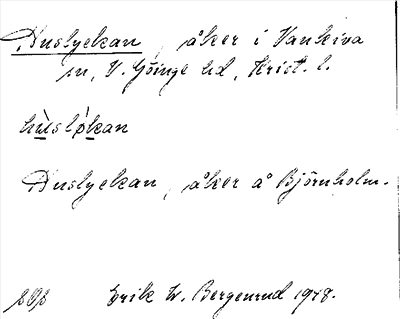 Huslyckan, åker i Vankiva
sn, V. Göinge hd, Krist. l.
hùslỳkan
Huslyckan, åker å Björnholm.
Erik W. Bergenrud 1948.